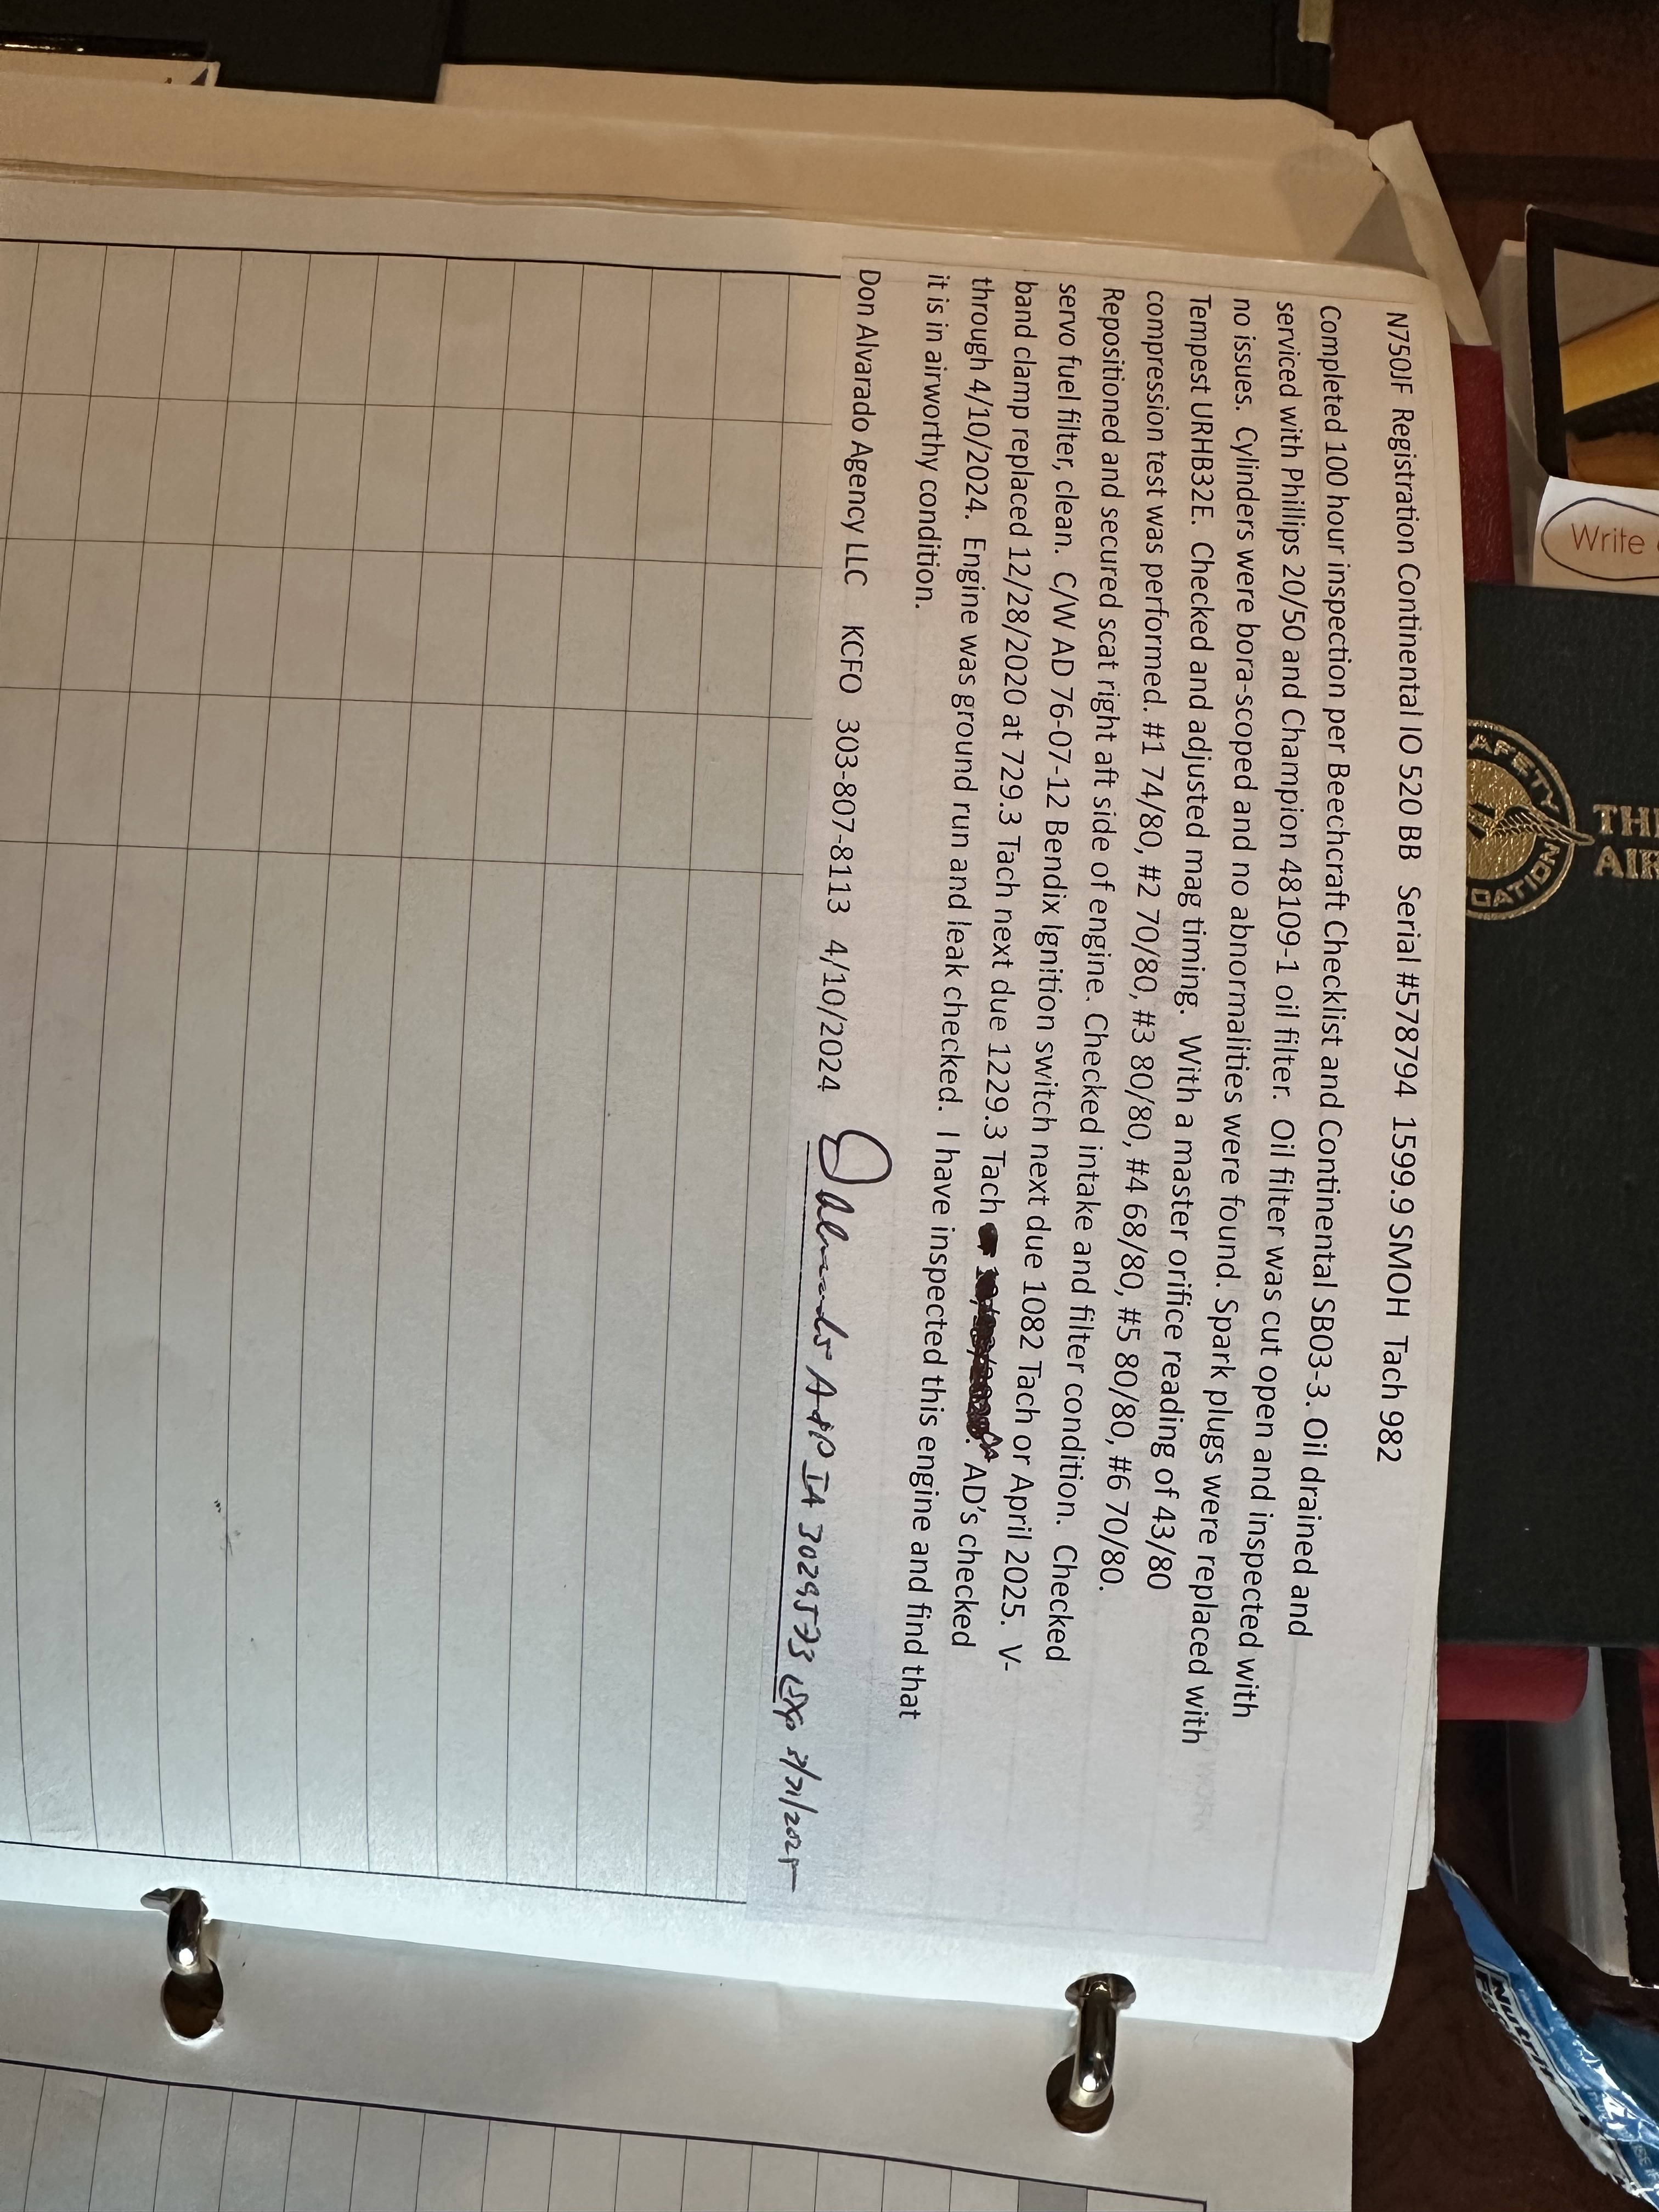 N750JF Registration Continental IO 520 BB Serial #578794 1599.9 SMOH Tach 982
Completed 100 hour inspection per Beechcraft Checklist and Continental SB03-3. Oil drained and
serviced with Phillips 20/50 and Champion 48109-1 oil filter. Oil filter was cut open and inspected with
no issues. Cylinders were bora-scoped and no abnormalities were found. Spark plugs were replaced with
Tempest URHB32E. Checked and adjusted mag timing. With a master orifice reading of 43/80
compression test was performed. #1 74/80, #2 70/80, #3 80/80, #4 68/80, #5 80/80, #6 70/80.
Repositioned and secured scat right aft side of engine. Checked intake and filter condition. Checked
servo fuel filter, clean. C/W AD 76-07-12 Bendix Ignition switch next due 1082 Tach or April 2025. V-
band clamp replaced 12/28/2020 at 729.3 Tach next due 1229.3 Tach . AD's checked
through 4/10/2024. Engine was ground run and leak checked. I have inspected this engine and find that
it is in airworthy condition.
Don Alvarado Agency LLC KCFO 303-807-8113 4/10/2024 D Alvarado A&P IA 3029573 EXP 3/31/2025
Write
AFETY
DATION
THE
AIR
Nutri